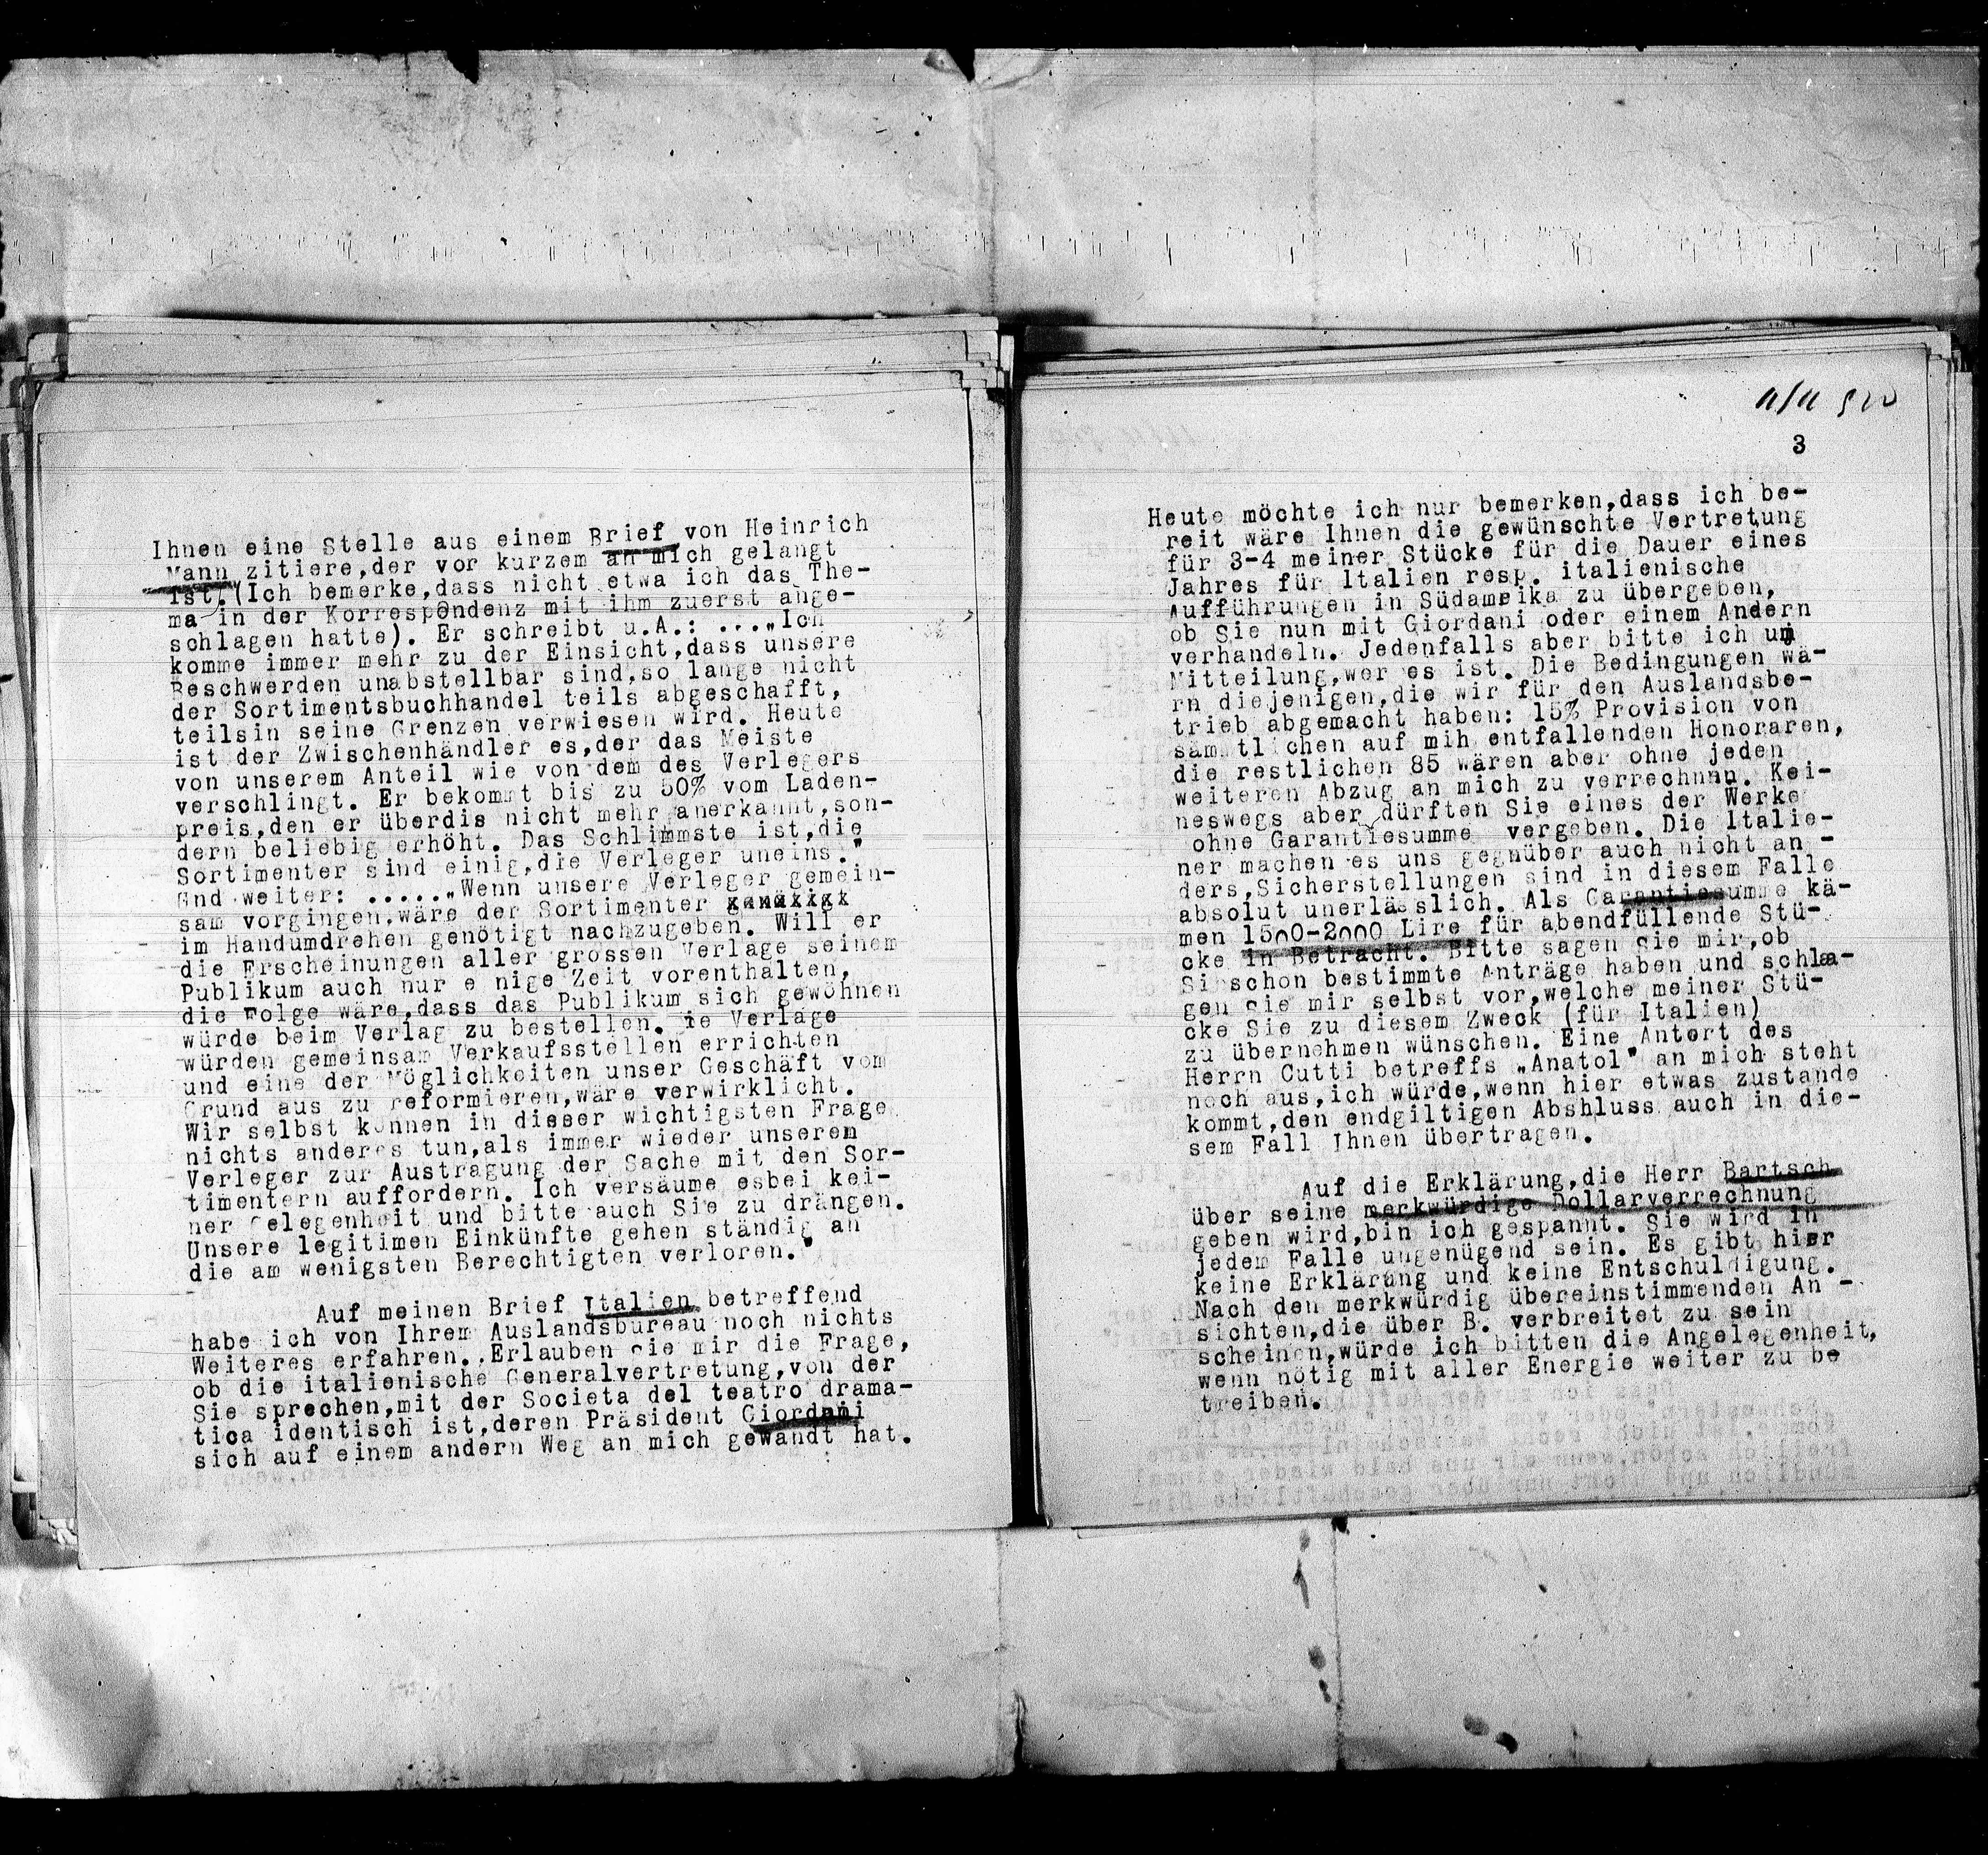 Ihnen eine Stelle aus einem Brief von Heinrich
Mann zitiere,der vor kurzem an mich gelangt
ist.(Ich bemerke,dass nicht etwa ich das The-
ma in der Korrespondenz mit ihm zuerst ange-
schlagen hatte). Er schreibt u.A.: ...„Ich
komme immer mehr zu der Einsicht,dass unsere
Beschwerden unabstellbar sind,so lange nicht
der Sortimentsbuchhandel teils abgeschafft,
teilsin seine Grenzen verwiesen wird. Heute
ist der Zwischenhändler es,der das Meiste
von unserem Anteil wie von dem des Verlegers
verschlingt. Er bekommt bis zu 50% vom Laden-
preis,den er überdis nicht mehr anerkannt,son-
dern beliebig erhöht. Das Schlimmste ist,die
Sortimenter sind einig,die Verleger uneins."
Und weiter: .....„Wenn unsere Verleger gemein-
sam vorgingen,wäre der Sortimenter
im Handumdrehen genötigt nachzugeben. Will er
die Erscheinungen aller grossen Verlage seinem
Publikum auch nur e nige Zeit vorenthalten,
die Folge wäre,dass das Publikum sich gewöhnen
würde beim Verlag zu bestellen. ie Verlage
würden gemeinsam Verkaufsstellen errichten
und eine der Möglichkeiten unser Geschäft vom
Grund aus zu reformieren,wäre verwirklicht.
Wir selbst können in dieser wichtigsten Frage
nichts anderes tun,als immer wieder unseren
Verleger zur Austragung der Sache mit den Sor-
timentern auffordern. Ich versäume esbei kei-
ner Gelegenheit und bitte auch Sie zu drängen.
Unsere legitimen Einkünfte gehen ständig an
die am wenigsten Berechtigten verloren."
Auf meinen Brief Italien betreffend
habe ich von Ihrem Auslandsbureau noch nichts
Weiteres erfahren. Erlauben Sie mir die Frage,
ob die italienische Generalvertretung,von der
Sie sprechen,mit der Societa del teatro drama-
tica identisch ist,deren Präsident Giordani
sich auf einem andern Weg an mich gewandt hat.
3
Heute möchte ich nur bemerken,dass ich be-
reit wäre Ihnen die gewünschte Vertretung
für 3-4 meiner Stücke für die Dauer eines
Jahres für Italien resp. italienische
Aufführungen in Südamerika zu übergeben,
ob Sie nun mit Giordani oder einem Andern
verhandeln. Jedenfalls aber bitte ich um
Mitteilung,wer es ist. Die Bedingungen wä-
rn diejenigen,die wir für den Auslandsbe-
trieb abgemacht haben: 15% Provision von
sämmtlichen auf mih entfallenden Honoraren,
die restlichen 85 wären aber ohne jeden
weiteren Abzug an mich zu verrechnnn. Kei-
neswegs aber dürften Sie eines der Werke
ohne Garantiesumme vergeben. Die Italie-
ner machen es uns gegnüber auch nicht an -
ders,Sicherstellungen sind in diesem Falle
absolut unerlässlich. Als Garantiesumme kä-
men 1500-2000 Lire für abendfüllende Stü-
cke in Betracht. Bitte sagen Sie mir,ob
Sieschon bestimmte Anträge haben und schla-
gen Sie mir selbst vor,welche meiner Stü-
cke Sie zu diesem Zweck (für Italien)
zu übernehmen wünschen. Eine Antort des
Herrn Cutti betreffs „Anatol" an mich steht
noch aus,ich würde,wenn hier etwas zustande
kommt,den endgiltigen Abshluss auch in die-
sem Fall Ihnen übertragen.
Auf die Erklärung,die Herr Bartsch
über seine merkwürdige Dollarverrechnung
geben wird,bin ich gespannt. Sie wird in
jedem Falle ungenügend sein. Es gibt hier
keine Erklärung und keine Entschuldigung.
Nach den merkwürdig übereinstimmenden An -
sichten,die über B. verbreitet zu sein
scheinen,würde ich bitten die Angelegenheit,
wenn nötig mit aller Energie weiter zu be
treiben.